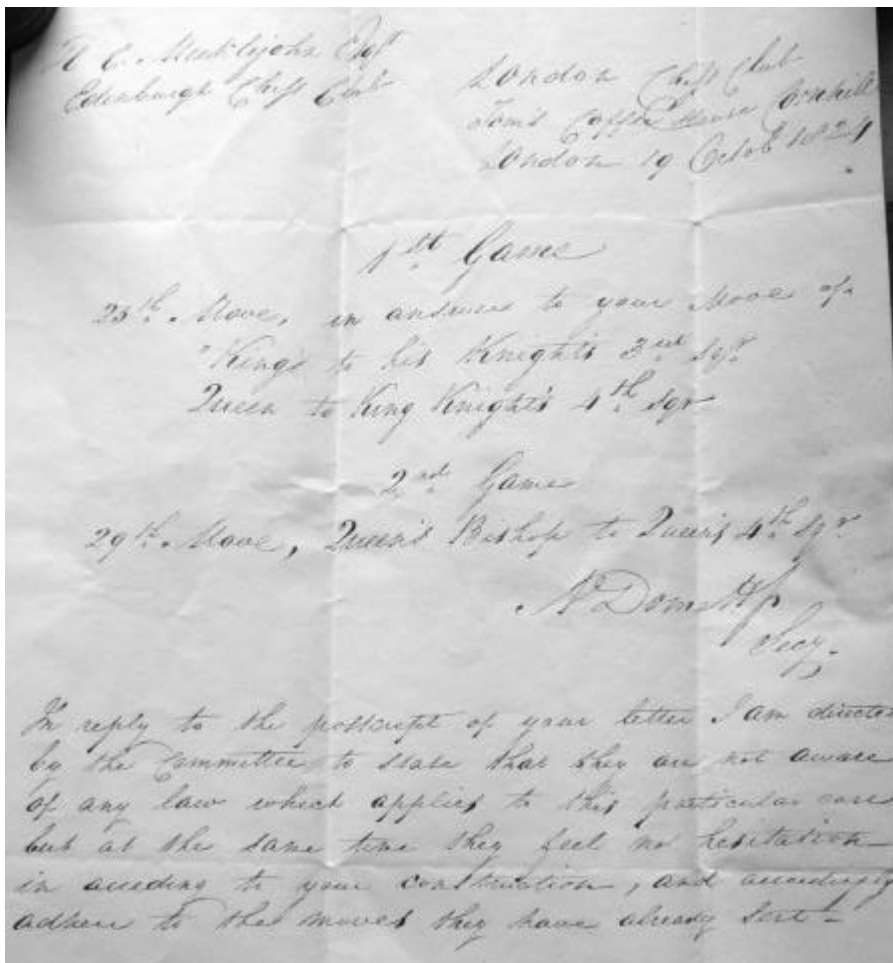 To C. Meiklejohn Esqr
Edinburgh Chess Club
London Chess Club
Tom's Coffee House Cornhill
London 19 Octob 1824
1st Game
25th Move, in answer to your Move of
"King's to his Knight's 3rd Sqr
Queen to King Knight's 4th Sqr
2nd Game
29th Move, Queen's Bishop to Queen's 4th Sqr
Secy.
In reply to the postscript of your letter I am directed
by the Committee to state that they are not aware
of any law which applies to this particular case
but at the same time they feel no hesitation
in acceding to your construction, and accordingly
adhere to the moves they have already sent –